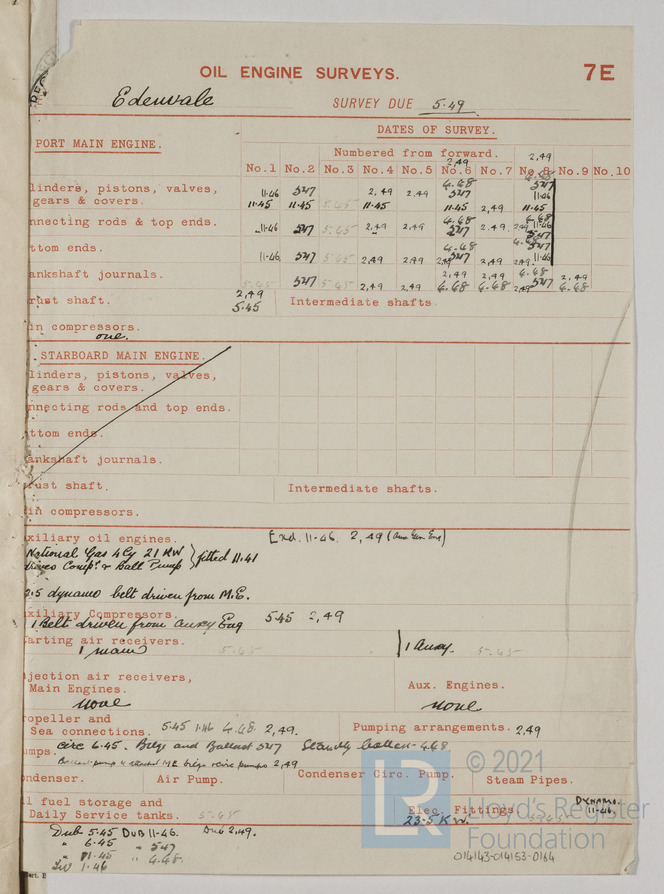 OIL ENGINE SURVEYS. 7E
Edenvale SURVEY DUE 5.49
DATES OF SURVEY.
PORT MAIN ENGINE.
Numbered from forward.
2,49 2,49
No.1 No.2 No.3 No.4 No.5 No.6 No.7 No.8 No.9 No.10
4.48
linders, pistons, valves, 11.46 547 2,49 2.49 547 547 11.46
gears & covers. 11.45 11.45 5.45 11.45 11.45 2,49 11.45
4.48 4.48
nnecting rods & top ends. 11.46 547 5.45 2,49 2,49 547 2.49 2,49 11.46
4.48 4.48 547
ttom ends. 11.46 547 5.45 2,49 2,49 2,49 547 2,49 2,49 11.46
2,49 2,49 4.48 2,49
ankshaft journals. 5.45 547 5.45 2,49 2,49 4.48 4.48 2,49 547 4.48
rust shaft. 2,49 5.45 Intermediate shafts.
in compressors.
one.
STARBOARD MAIN ENGINE.
linders, pistons, valves,
gears & covers.
nnecting rods and top ends.
ttom ends.
ankshaft journals.
rust shaft. Intermediate shafts.
in compressors.
xiliary oil engines. Exd. 11.46. 2,49 (Aux Gen Eng)
National Gas 4Cy 21 KW } fitted 11.41
drives Comp. & Ball Pump
2.5 dynamo belt driven from M.E.
xiliary Compressors. 5.45 2,49
1 Belt driven from auxy Eng
arting air receivers.
1 main 5.45 1 Auxy. 5.45
jection air receivers,
Main Engines. Aux. Engines.
none none
opeller and
Sea connections. 5.45 1.46 4.48. 2,49. Pumping arrangements. 2,49
mps. circ 6.45. Bilge and Ballast 547 Standby 4.48
Ballast pump & attached M.E. bilge & circ pumps 2,49
ndenser. Air Pump. Condenser Circ. Pump. Steam Pipes.
l fuel storage and
Daily Service tanks. 5.45 Elec. Fittings 5.45 DYNAMO. 11.46.
23.5 K.W.
Dub 5.45 DUB 11.46. Dub 2.49.
" 6.45 " 547
" 11.45 " 4.48.
Liv 1.46
© 2021
Lloyd's Register
Foundation
LR
014143-014153-0164